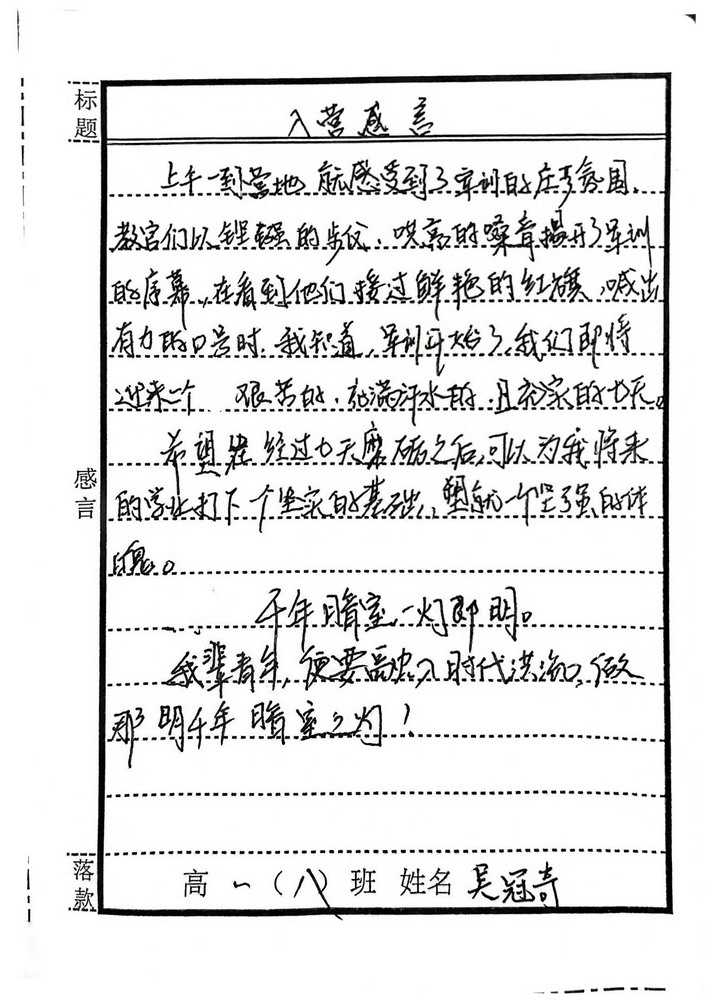 标题
入营感言
上午一到营地 就感受到了军训的庄严氛围,
教官们以铿锵的步伐、洪亮的嗓音揭开了军训
的序幕,在看到他们接过鲜艳的红旗,喊出
有力的口号时,我知道,军训开始了,我们即将
迎来一个 艰苦的、充满汗水的、且充实的七天。
感言
希望在经过七天磨砺之后,可以为我将来
的学业打下一个坚实的基础,塑就一个坚强的体
魄。
千年暗室,一灯即明。
我辈青年,便要融入时代洪流,做
那明千年暗室之灯!
落款
高一(八)班 姓名 吴冠奇